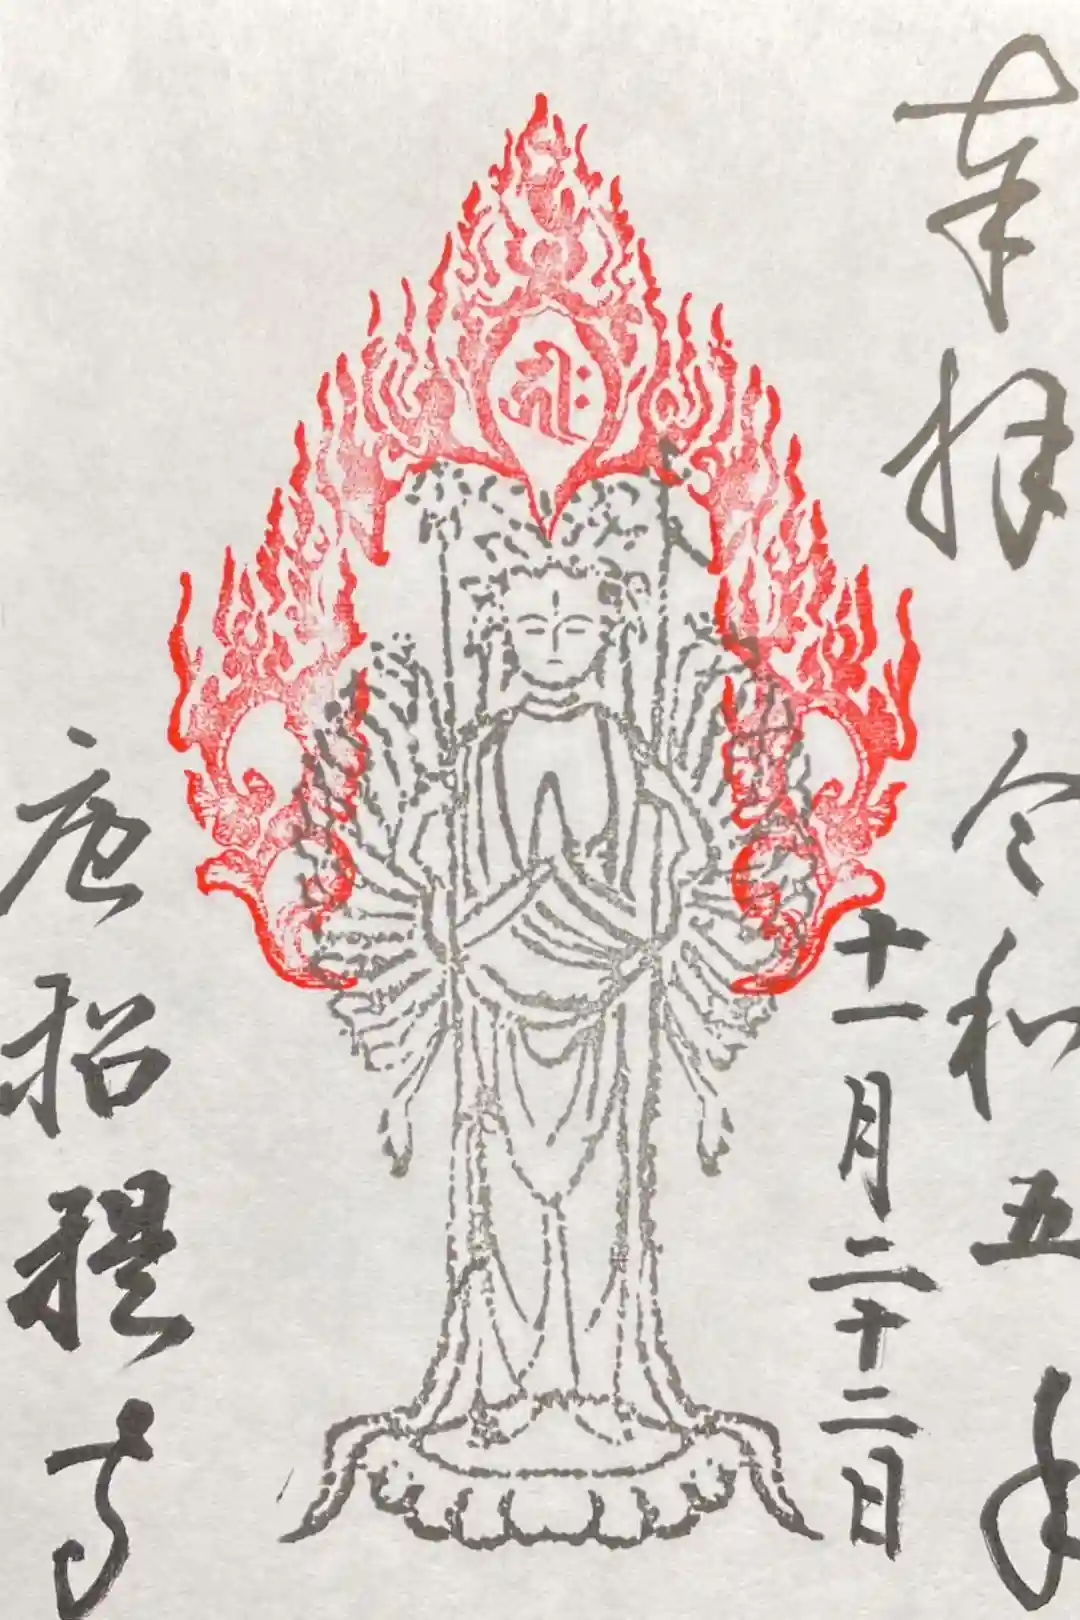 奉拝 令和五年
十一月二十二日
𑖮𑖿𑖨𑖱𑖾
唐招提寺